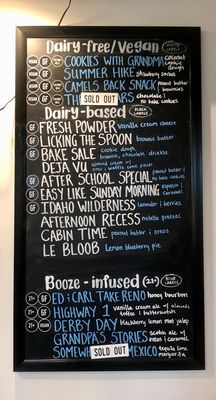 Dairy-free/Vegan WHITE LABELS
VEGAN GF COOKIES WITH GRANDMA coconut cookie dough
VEGAN GF SUMMER HIKE strawberry sorbet
VEGAN GF CAMELS BACK SNACK peanut butter + brownies
VEGAN GF TH SOLD OUT ARS chocolate + no bake cookies
Dairy-based BLACK LABELS
GF FRESH POWDER vanilla cream cheese
GF LICKING THE SPOON brownie butter
GF BAKE SALE cookie dough, brownie, chocolate drizzle
DEJA VU almond cream w/ oreo + waffle cone pieces
GF AFTER SCHOOL SPECIAL peanut butter/ no bake cookies
GF EASY LIKE SUNDAY MORNING espresso + caramel
GF IDAHO WILDERNESS lavender + berries
AFTERNOON RECESS nutella pretzel
CABIN TIME peanut butter + oreos
LE BLOOB lemon blueberry pie
Booze-infused (21+) BLUE LABELS
21+ GF ED + CARL TAKE RENO honey bourbon
21+ GF HIGHWAY 1 vanilla cream ale w/ almond toffee + butterscotch
21+ GF DERBY DAY blackberry lemon mint julep
21+ GRANDPAS STORIES scotch ale w/ oreos + caramel
21+ GF SOMEW SOLD OUT MEXICO tequila lime margarita